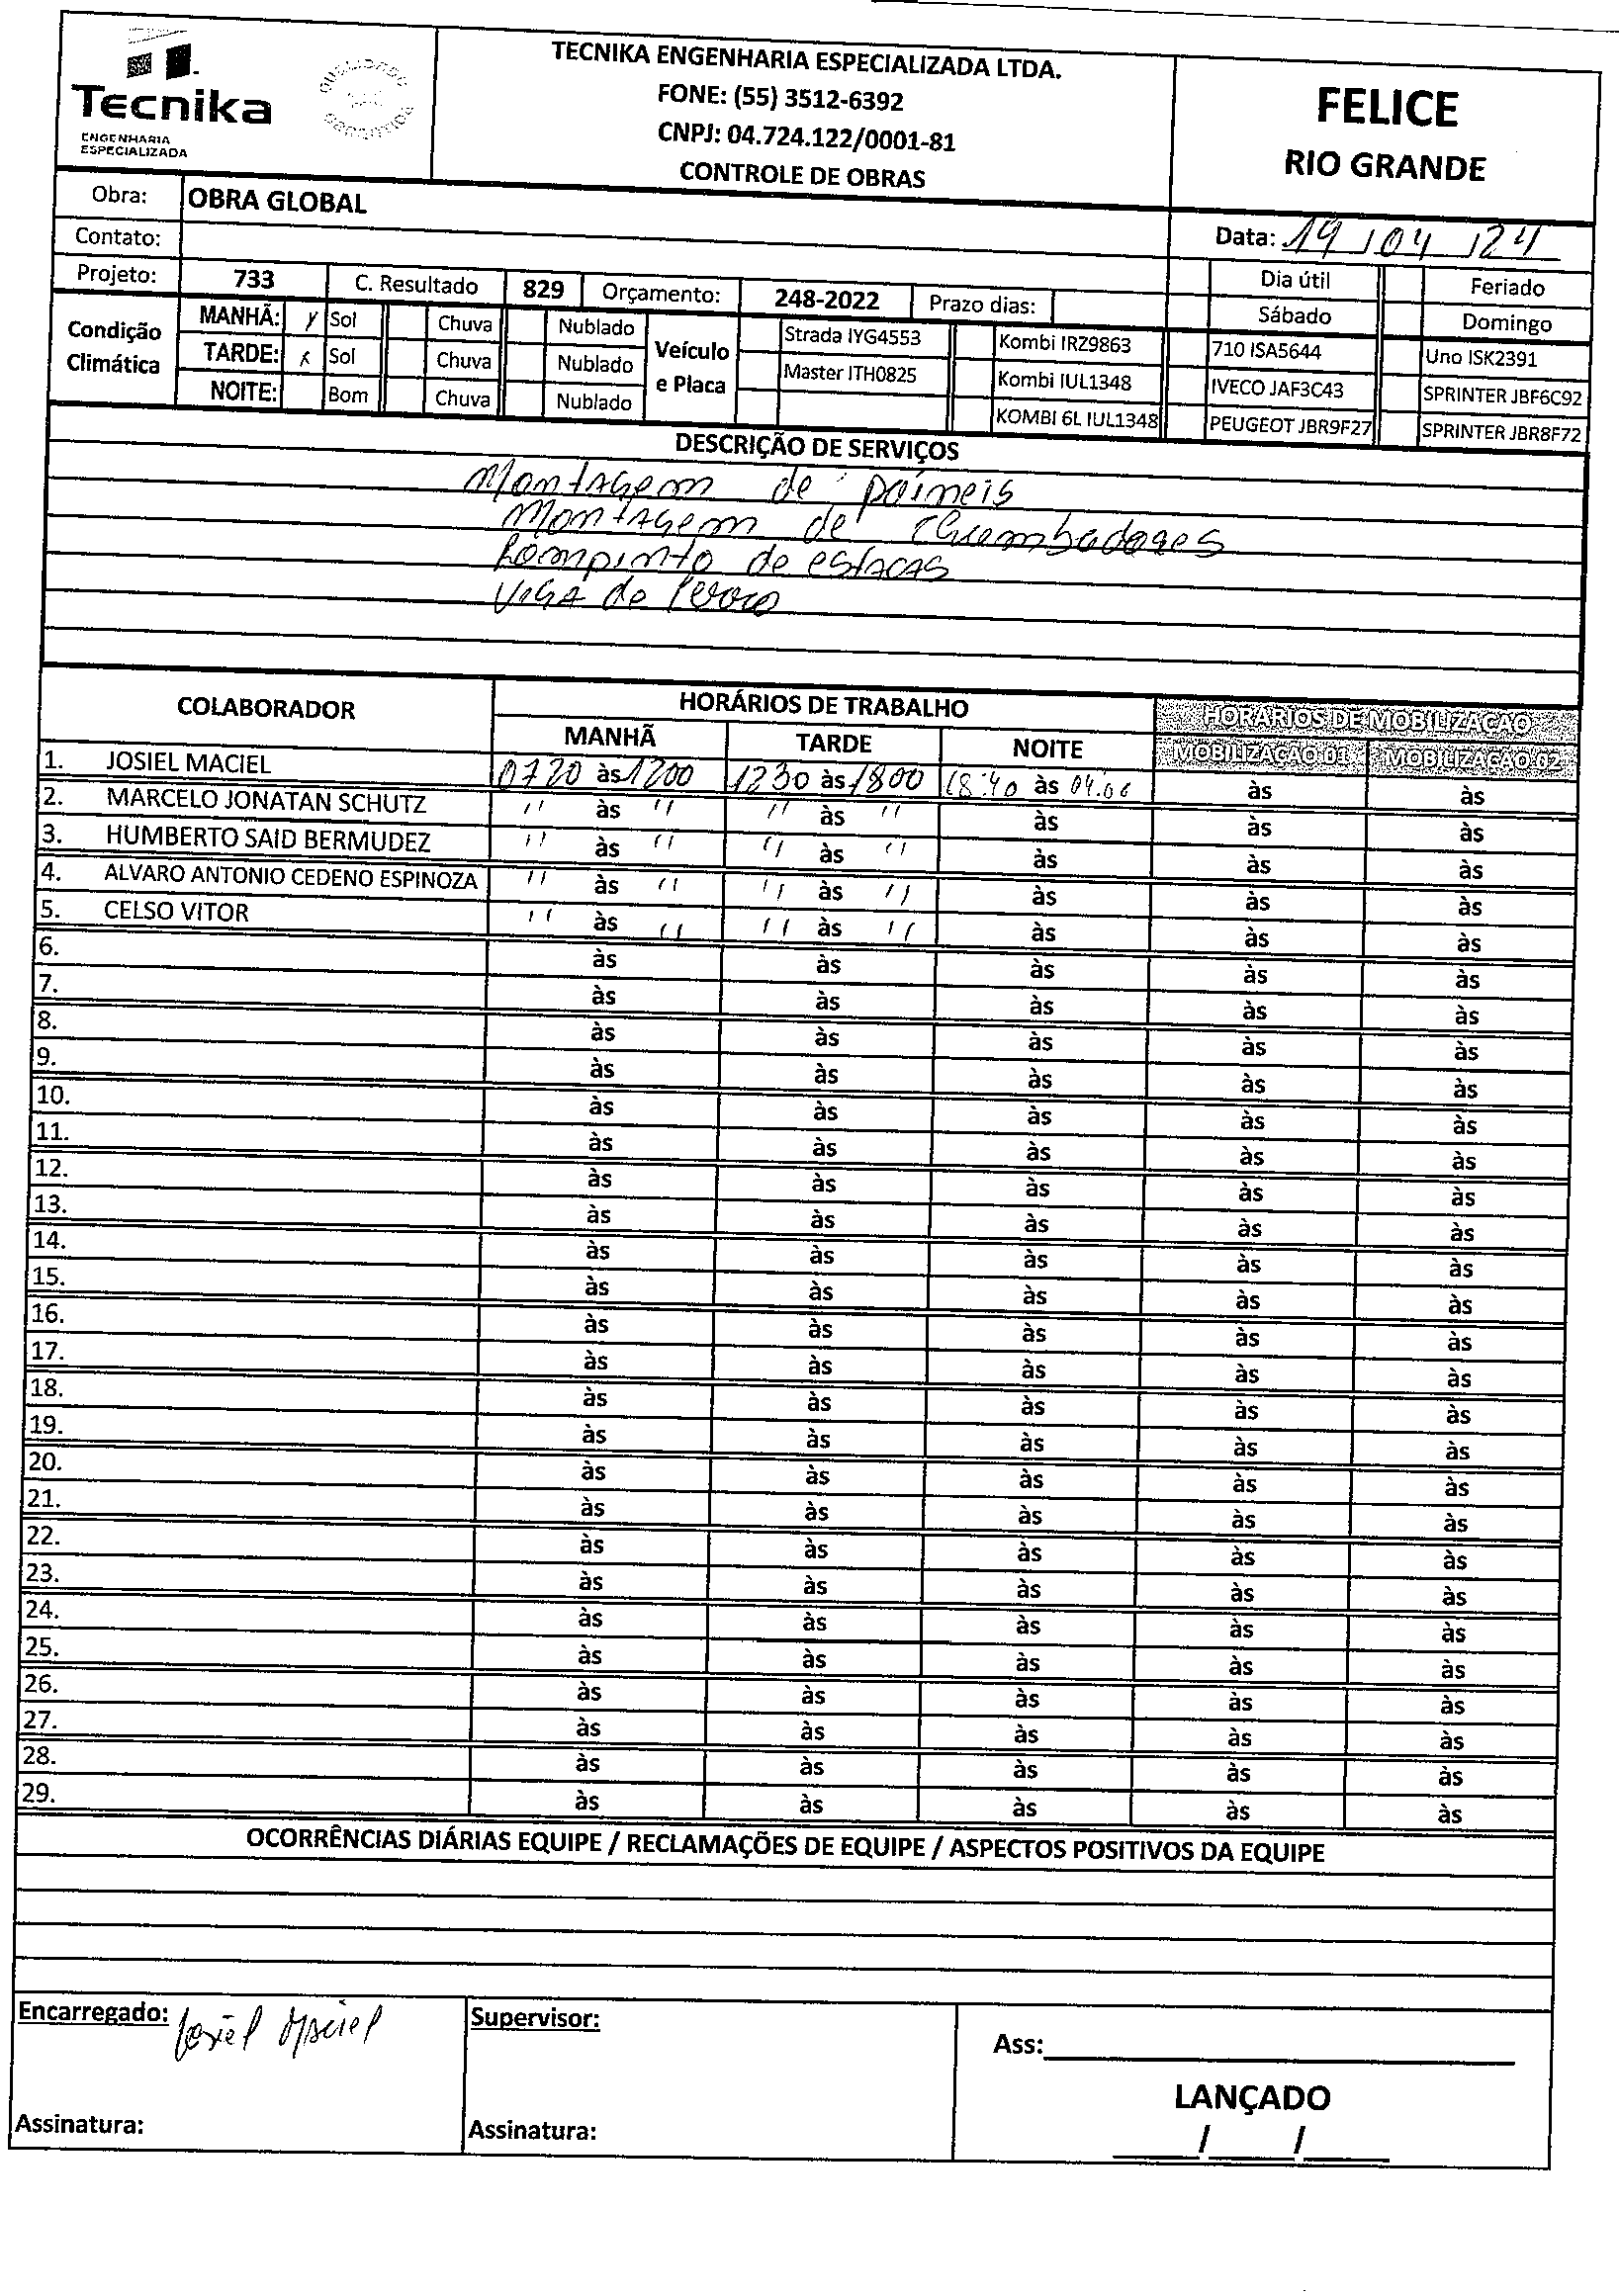 Tecnika
ENGENHARIA
ESPECIALIZADA
TECNIKA ENGENHARIA ESPECIALIZADA LTDA.
FONE: (55) 3512-6392
CNPJ: 04.724.122/0001-81
CONTROLE DE OBRAS
FELICE
RIO GRANDE
Obra: OBRA GLOBAL
Contato:
Data: 19/04/24
Projeto: 733 C. Resultado 829 Orçamento: 248-2022 Prazo dias: Dia útil Feriado
Sábado Domingo
Condição Climática
MANHÃ: x Sol Chuva Nublado
TARDE: x Sol Chuva Nublado
NOITE: Bom Chuva Nublado
Veículo e Placa
Strada IYG4553 Kombi IRZ9863 710 ISA5644 Uno ISK2391
Master ITH0825 Kombi IUL1348 IVECO JAF3C43 SPRINTER JBF6C92
KOMBI 6L IUL1348 PEUGEOT JBR9F27 SPRINTER JBR8F72
DESCRIÇÃO DE SERVIÇOS
Montagem de paineis
Montagem de chumbadores
Rompinto de estacas
Viga de
COLABORADOR HORÁRIOS DE TRABALHO HORÁRIOS DE MOBILIZAÇÃO
MANHÃ TARDE NOITE MOBILIZAÇÃO 01 MOBILIZAÇÃO 02
1. JOSIEL MACIEL 0720 às 1200 1230 às 1800 18:40 às 04:00 às às
2. MARCELO JONATAN SCHUTZ " às " " às " às às às
3. HUMBERTO SAID BERMUDEZ " às " " às " às às às
4. ALVARO ANTONIO CEDENO ESPINOZA " às " " às " às às às
5. CELSO VITOR " às " " às " às às às
6. às às às às às
7. às às às às às
8. às às às às às
9. às às às às às
10. às às às às às
11. às às às às às
12. às às às às às
13. às às às às às
14. às às às às às
15. às às às às às
16. às às às às às
17. às às às às às
18. às às às às às
19. às às às às às
20. às às às às às
21. às às às às às
22. às às às às às
23. às às às às às
24. às às às às às
25. às às às às às
26. às às às às às
27. às às às às às
28. às às às às às
29. às às às às às
OCORRÊNCIAS DIÁRIAS EQUIPE / RECLAMAÇÕES DE EQUIPE / ASPECTOS POSITIVOS DA EQUIPE
Encarregado: Josiel Maciel
Supervisor:
Ass:
LANÇADO
/ /
Assinatura:
Assinatura: